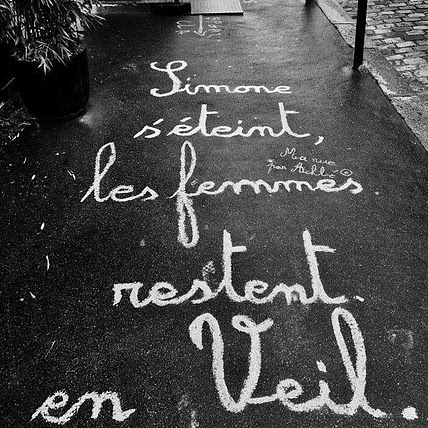 Simone
s'éteint,
Ma rue
par Achbé ©
les femmes
restent.
en Veil.